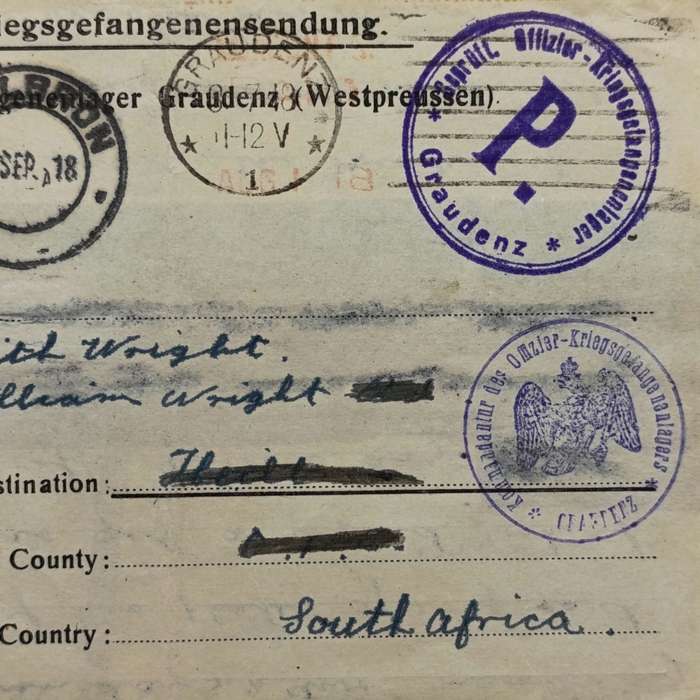 iegsgefangenensendung.
genenlager Graudenz (Westpreussen)
GRAUDENZ
7.18
11-12 V
* 1 *
SEP. 18
* Geprüft. Offizier-Kriegsgefangenenlager * Graudenz
P.
ith Wright.
lliam Wright
Kommandantur des Offizier-Kriegsgefangenenlagers *
stination:
County:
Country: South Africa.